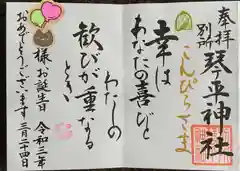 奉拝
別所
琴平神社
こんぴらさま
幸は
あなたの喜びと
わたしの
歓びが重なる
とき
様お誕生日
令和三年
おめでとうございます
三月二十四日